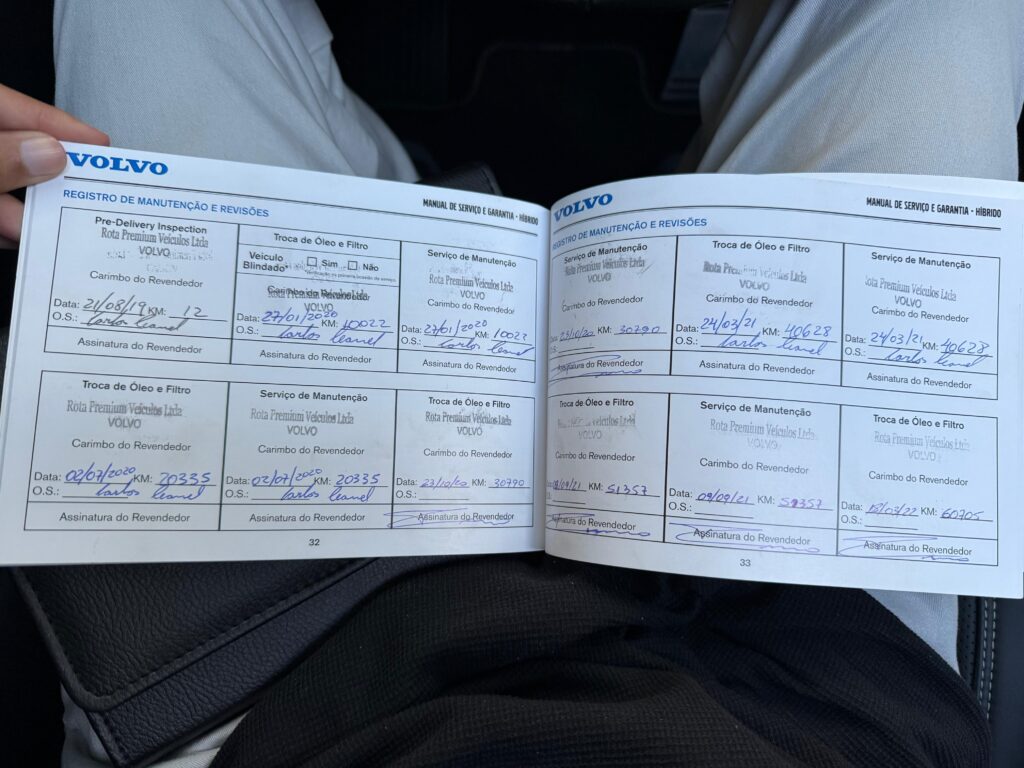 VOLVO
MANUAL DE SERVIÇO E GARANTIA - HÍBRIDO
REGISTRO DE MANUTENÇÃO E REVISÕES
Pre-Delivery Inspection
Rota Premium Veículos Ltda
VOLVO
Carimbo do Revendedor
Data: 21/08/19 KM: 12
O.S.:
Assinatura do Revendedor
Troca de Óleo e Filtro
Veículo Blindado Sim Não
Carimbo do Revendedor
Rota Premium Veículos Ltda
VOLVO
Data: 27/01/2020 KM: 10022
O.S.:
Assinatura do Revendedor
Serviço de Manutenção
Rota Premium Veículos Ltda
VOLVO
Carimbo do Revendedor
Data: 27/01/2020 KM: 10022
O.S.:
Assinatura do Revendedor
Troca de Óleo e Filtro
Rota Premium Veículos Ltda
VOLVO
Carimbo do Revendedor
Data: 02/07/2020 KM: 20335
O.S.:
Assinatura do Revendedor
Serviço de Manutenção
Rota Premium Veículos Ltda
VOLVO
Carimbo do Revendedor
Data: 02/07/2020 KM: 20335
O.S.:
Assinatura do Revendedor
Troca de Óleo e Filtro
Rota Premium Veículos Ltda
VOLVO
Carimbo do Revendedor
Data: 23/10/20 KM: 30790
O.S.:
Assinatura do Revendedor
32
VOLVO
MANUAL DE SERVIÇO E GARANTIA - HÍBRIDO
REGISTRO DE MANUTENÇÃO E REVISÕES
Serviço de Manutenção
Rota Premium Veículos Ltda
VOLVO
Carimbo do Revendedor
Data: 23/10/20 KM: 30790
O.S.:
Assinatura do Revendedor
Troca de Óleo e Filtro
Rota Premium Veículos Ltda
VOLVO
Carimbo do Revendedor
Data: 24/03/21 KM: 40628
O.S.:
Assinatura do Revendedor
Serviço de Manutenção
Rota Premium Veículos Ltda
VOLVO
Carimbo do Revendedor
Data: 24/03/21 KM: 40628
O.S.:
Assinatura do Revendedor
Troca de Óleo e Filtro
VOLVO
Carimbo do Revendedor
09/09/21 KM: 51357
Assinatura do Revendedor
Serviço de Manutenção
Rota Premium Veículos Ltda
VOLVO
Carimbo do Revendedor
Data: 09/09/21 KM: 51357
O.S.:
Assinatura do Revendedor
Troca de Óleo e Filtro
Rota Premium Veículos Ltda
VOLVO
Carimbo do Revendedor
Data: 18/03/22 KM: 60705
O.S.:
Assinatura do Revendedor
33